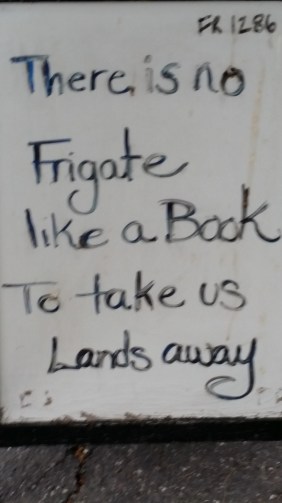 FR 1286
There is no
Frigate
like a Book
To take us
Lands away